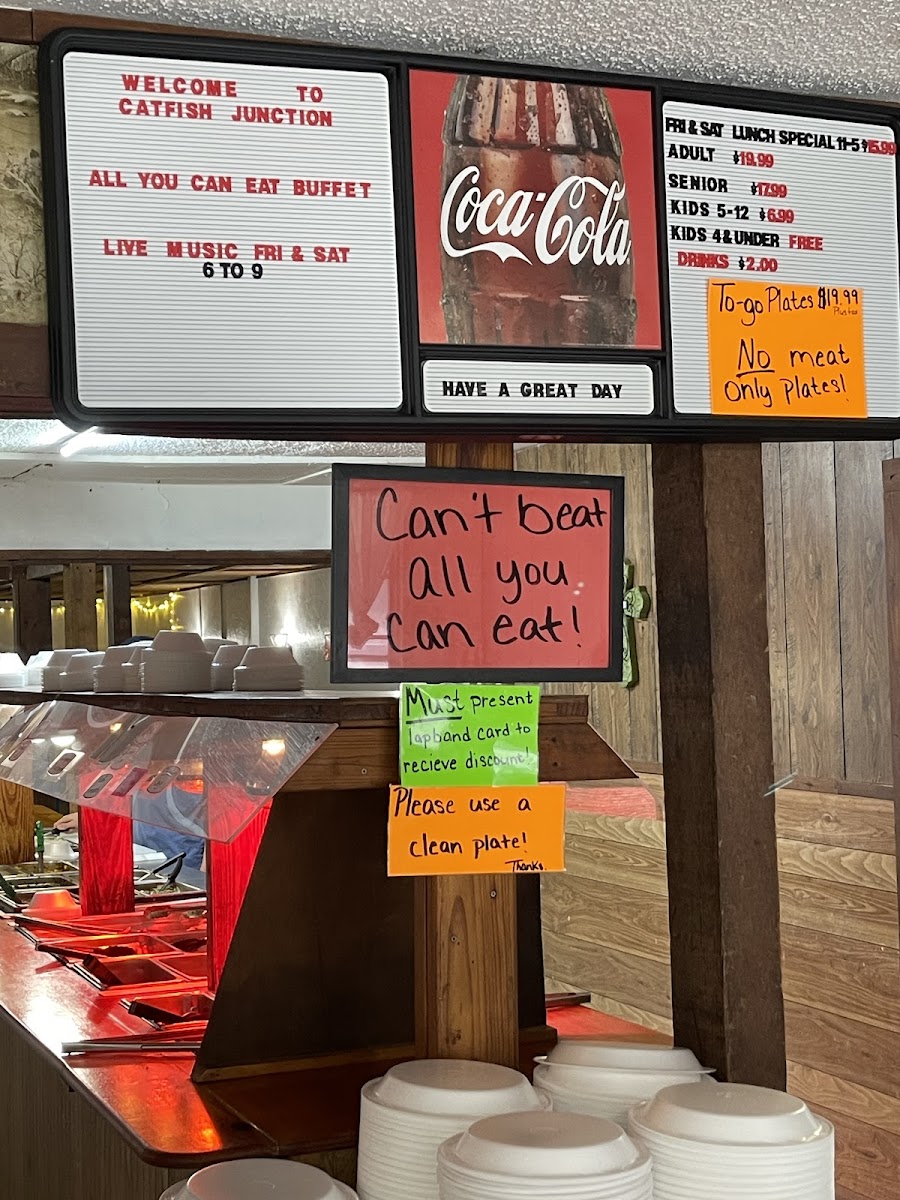 WELCOME TO
CATFISH JUNCTION
ALL YOU CAN EAT BUFFET
LIVE MUSIC FRI & SAT
6 TO 9
Coca-Cola
HAVE A GREAT DAY
FRI & SAT LUNCH SPECIAL 11-5 $15.99
ADULT $19.99
SENIOR $17.99
KIDS 5-12 $6.99
KIDS 4 & UNDER FREE
DRINKS $2.00
To-go Plates $19.99
Plus tax
No meat
only plates!
Can't beat
all you
can eat!
Must present
Tapband card to
recieve discount!
Please use a
clean plate!
Thanks.